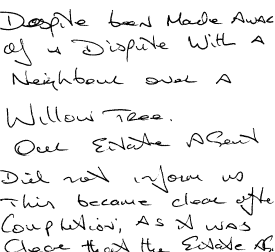 Despite been Made Awar
of a Dispute With A
Neighbour over A
Willow Tree.
Our Estate Agent
Did not inform us
This became clear after
Completion, As it was
Clear that the Estate A